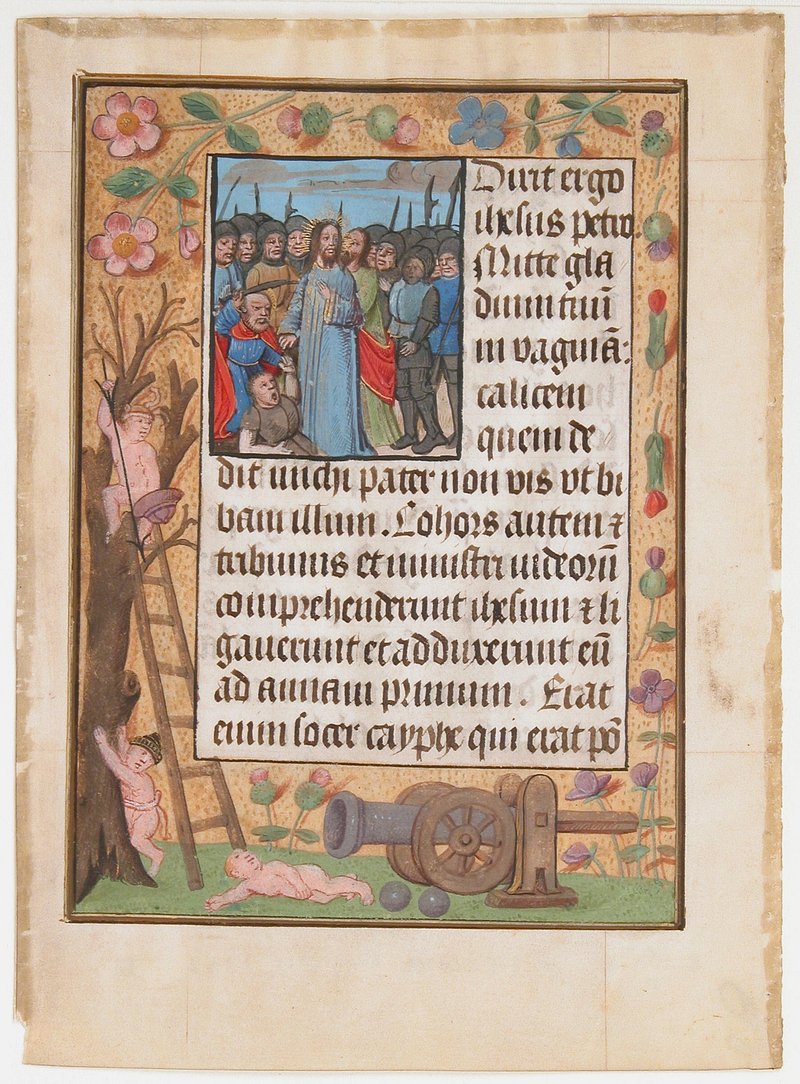 Dixit ergo
ihesus petro.
Mitte gla
dium tuū
in vaginā:
calicem
quem de
dit michi pater non vis vt bi
bam illum. Cohors autem ⁊
tribunus et ministri iudeorū
comprehenderunt ihesum ⁊ li
gauerunt et adduxerunt eū
ad annam primum. Erat
enim socer cayphe qui erat pō